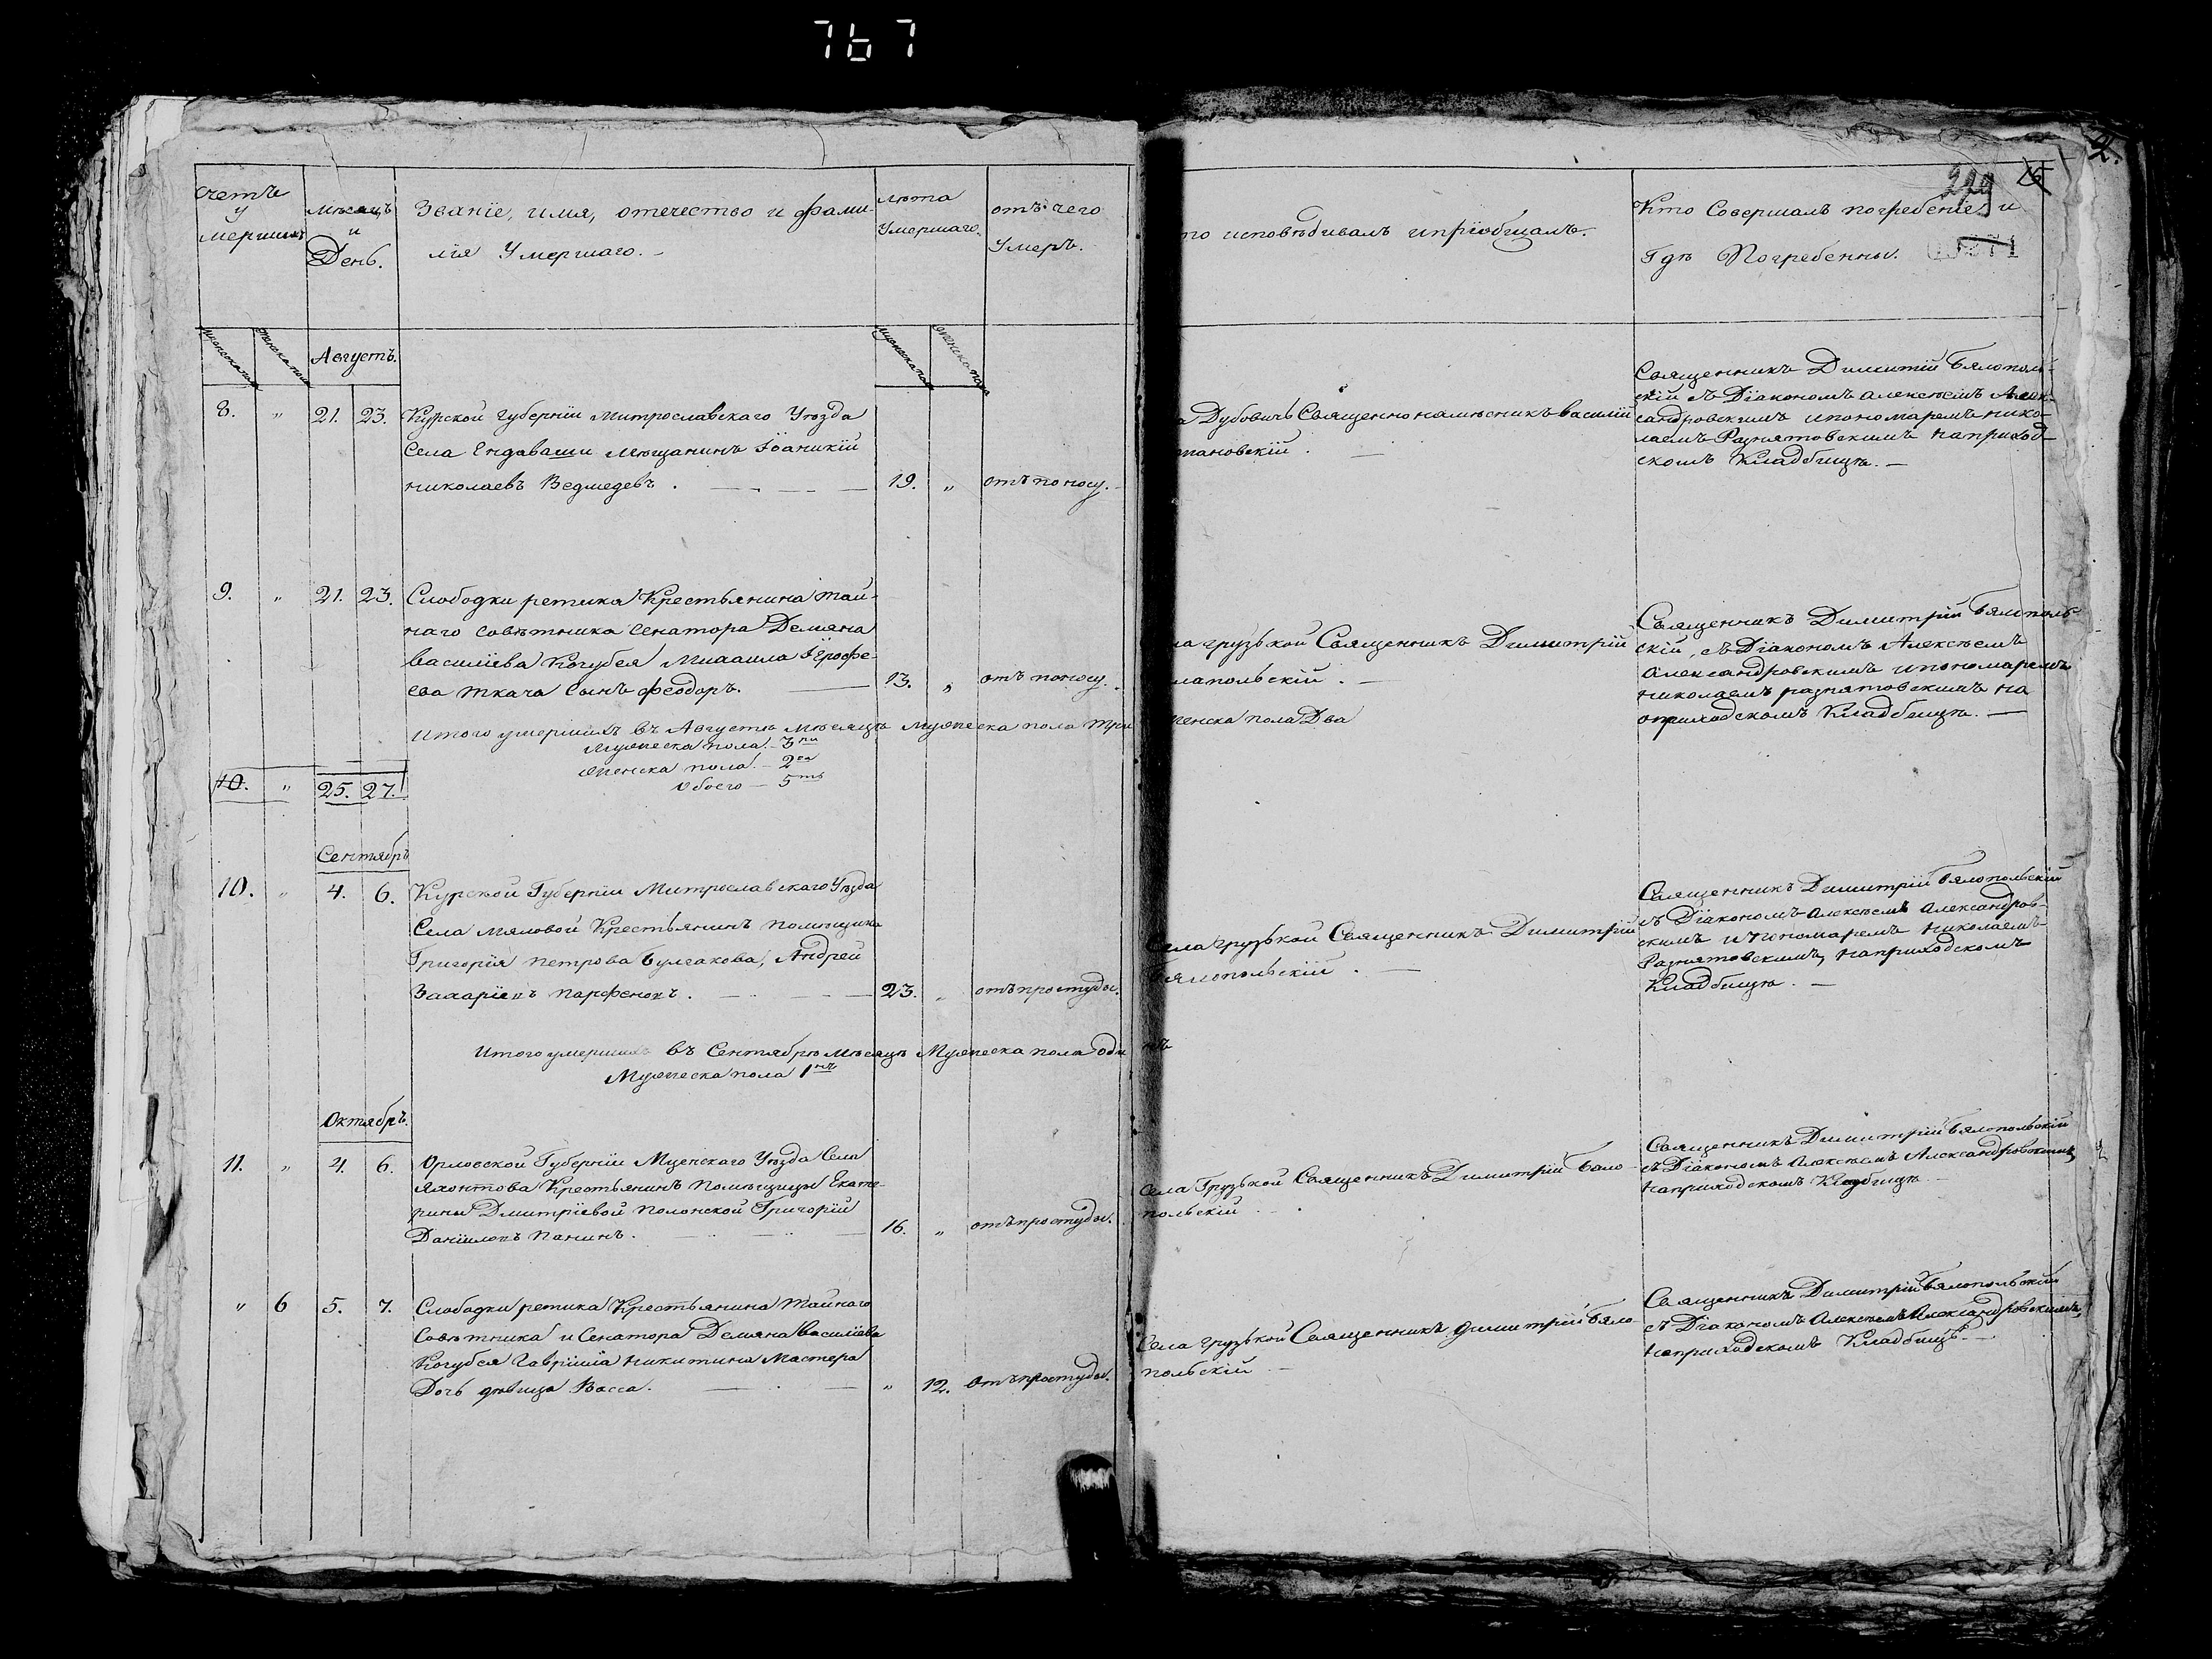 767
2.
счетъ
у
мершихъ
мѣсяцъ
и
День.
Званіе, имя, отечество и фами-
лія Умершаго. –
лѣта
Умершаго.
отъ чего
Умеръ.
то исповѣдивалъ и пріобщалъ.
229
26
Кто Совершалъ погребеніе и
Гдѣ Погребенны.
мужеска пола
женска пола
Августъ.
мужеска пола
женска пола
8. „ 21. 23. Курской губерніи Митрославскаго Уѣзда
Села Ендаваши мещанинъ Іоаникій
николаевъ Ведмедевъ. 19. „ отъ поносу.
а Дубовичь Священнонамѣсникъ василій
тановскій.
Священникъ Димитій Бялополь-
скій съ Діакономъ алексѣемъ Алек-
сандровскимъ и пономаремъ нико-
лаемъ Разнятовскимъ наприход-
скомъ Кладбищѣ. –
9. „ 21. 23. Слободки ретика Крестьянина тай-
наго совѣтника Сенатора Демяна
василіева Кочубея Михаила Ярофе-
ева ткача Сынъ феодоръ. 13. „ отъ поносу.
ла грузькой Священникъ Димитрій
лапольскій. –
Священникъ Димитрій Бялополь-
скій, съ Діакономъ Алексѣемъ
Александровскимъ и пономаремъ
николаемъ разнятовскимъ на
приходскомъ Кладбищѣ. –
Итого умершихъ въ Августѣ мѣсяцѣ Мужеска пола три
женска пола Два
Мужеска пола – 3ри
женска пола – 2ва
Обоего – 5ть
10. „ 25. 27.
Сентябрь
10. „ 4. 6. Курской Губерніи Митрославскаго Уѣзда
Села мяловой Крестьянинъ помѣщика
Григорія петрова Булгакова, Андрей
Захаріевъ парфеновъ. 23. „ отъ простуды.
Села грузькой Священникъ Димитрій
Бялопольскій. –
Священникъ Димитрій Бялопольскій
съ Діакономъ Алексѣемъ Александров-
скимъ и пономаремъ николаемъ
Разнятовскимъ, наприходскомъ
Кладбищѣ. –
Итого умершихъ въ Сентябрѣ мѣсяцѣ Мужеска пола оди
нъ
Мужеска пола 1нъ
Октябрь.
11. „ 4. 6. Орловской Губерніи Мценскаго Уѣзда Села
Яхонтова Крестьянинъ помѣщицы Екате-
рины Дмитріевой полонской Григорій
Даніиловъ панинъ. 16. „ отъ простуды.
Села Грузькой Священникъ Димитрій Бало-
польскій
Священникъ Димитрій Бялопольскій
съ Діакономъ Алексѣемъ Александровскимъ
наприходскомъ Кладбищѣ
„ 6 5. 7. Слободки ретика Крестьянина тайнаго
Совѣтника и Сенатора Демяна василіева
Кочубея Гавріила никитина Мастера
Дочь дѣвица Васса. „ 12. отъ простуды.
Села грузькой Священникъ димитрій Бяло-
польскій –
Священникъ Димитрій Бялопольскій
съ Діакономъ Алексѣемъ Александровскимъ
наприходскомъ Кладбищѣ. –